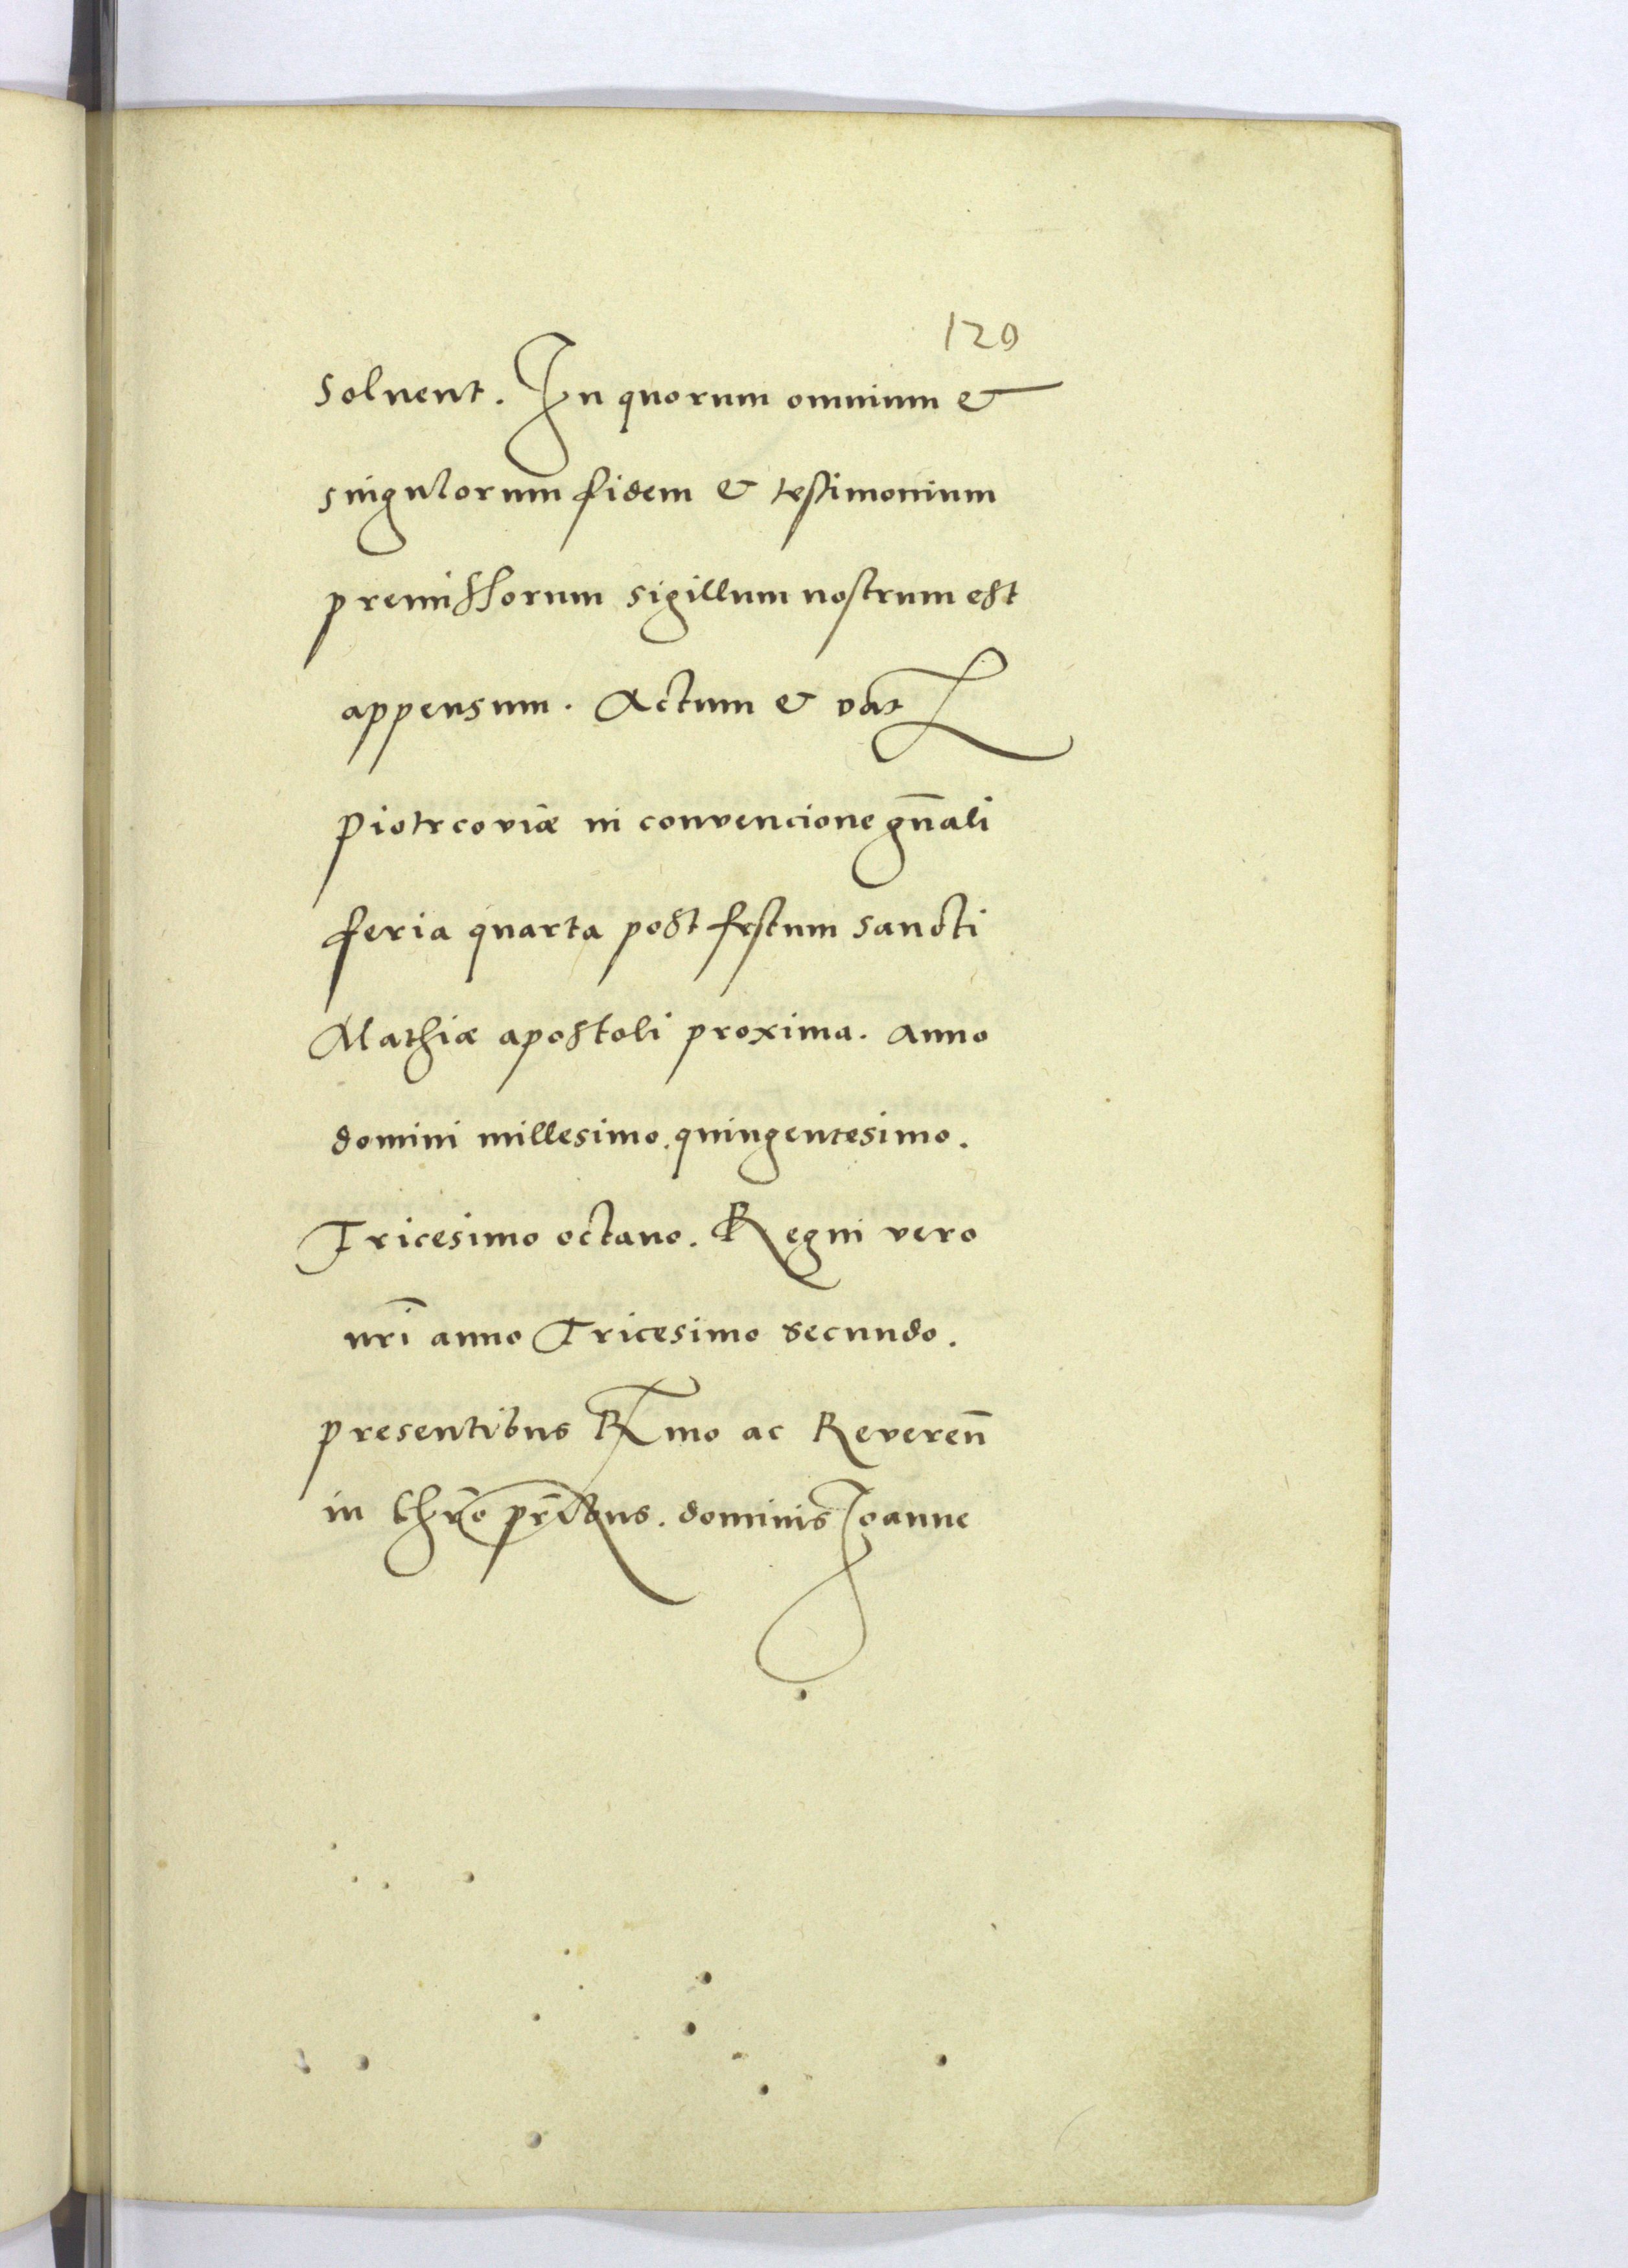 120
soluent. In quorum omnium &
singulorum fidem & testimonium
premissorum sigillum nostrum est
appensum. Actum & dat
Piotrcoviæ in convencione gn̄ali
feria quarta post festum sancti
Mathiæ apostoli proxima. Anno
domini millesimo. quingentesimo.
Tricesimo octauo. Regni vero
nr̄i anno Tricesimo secundo.
presentibus Rmo ac Reveren̄
in Chr̄o pr̄ibus. dominis Joanne